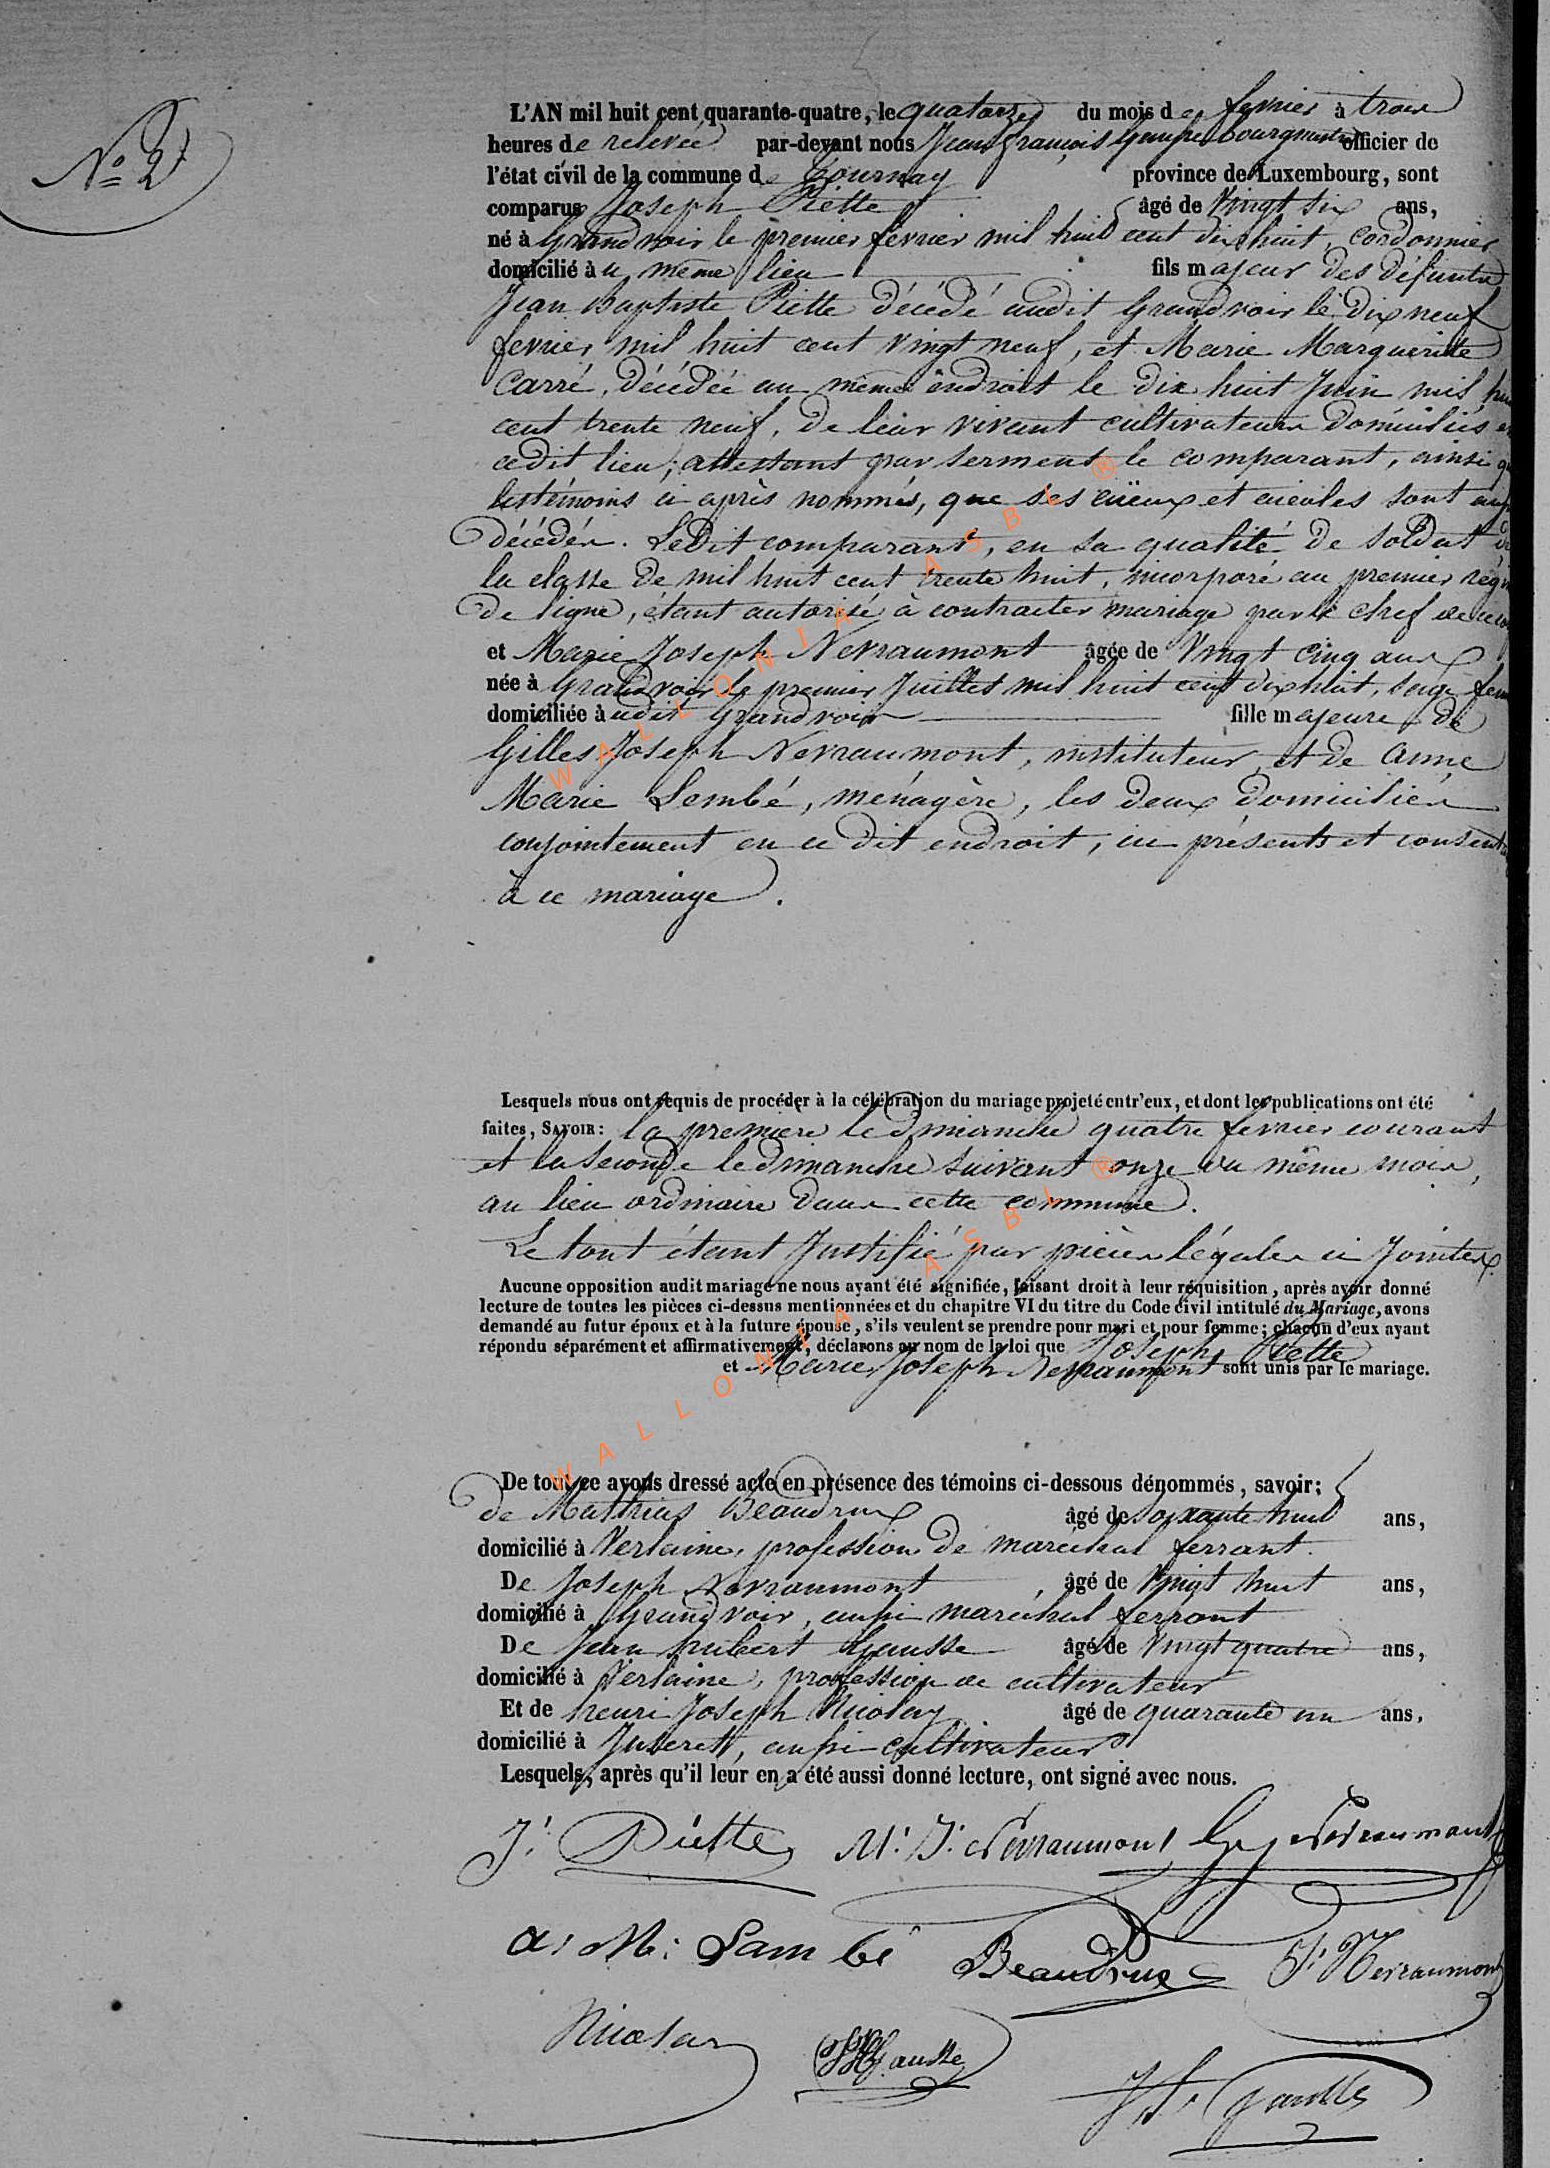 N° 2
L'AN mil huit cent quarante-quatre, le quatorze du mois de fevrier à trois
heures de relevée par-devant nous Jean françois Gausse bourgmestre officier de
l'état civil de la commune de Tournay province de Luxembourg, sont
comparus Joseph Piette âgé de Vingt six ans,
né à Grandvoir le premier février mil huit cent dix huit, cordonnier
domicilié à u même lieu fils majeur des défunts
Jean Baptiste Piette décédé audit Grandvoir le dix neuf
fevrier mil huit cent vingt neuf, et Marie Marguerite
Carré, décédée au même endroit le dix huit Juin mil
cent trente neuf, de leur vivant cultivateurs domiciliés
cedit lieu; attestant par serment le comparant, ainsi
les témoins ci après nommés, que ses aïeux et aieules sont
décédés. Ledit comparant, en sa qualité de soldat
la classe de mil huit cent trente huit, incorporé au premier
de ligne, étant autorisé à contracter mariage par le chef de
et Marie Joseph Nevraumont âgée de Vingt cinq ans
née à Grandvoir le premier Juillet mil huit cent dix huit,
domiciliée audit Grandvoir fille majeure de
Gilles Joseph Nevraumont, instituteur, et de anne
Marie Lembé, ménagère, les deux domiciliés
conjointement en ce dit endroit, ici présents et
à ce mariage.
Lesquels nous ont requis de procéder à la célébration du mariage projeté entr'eux, et dont les publications ont été
faites, SAVOIR: la première le dimanche quatre fevrier courant
et la seconde le dimanche suivant onze du même mois,
au lieu ordinaire dans cette commune.
Le tout étant Justifié par pièces légales ci Jointes.
Aucune opposition audit mariage ne nous ayant été signifiée, faisant droit à leur réquisition, après avoir donné
lecture de toutes les pièces ci-dessus mentionnées et du chapitre VI du titre du Code Civil intitulé du Mariage, avons
demandé au futur époux et à la future épouse, s'ils veulent se prendre pour mari et pour femme; chacun d'eux ayant
répondu séparément et affirmativement, déclarons au nom de la loi que Joseph Piette
et Marie Joseph Nevraumont sont unis par le mariage.
De tout ce avons dressé acte en présence des témoins ci-dessous dénommés, savoir;
de Mathias Beaudrux âgé de soixante huit ans,
domicilié à Verlaine, profession de maréchal ferrant.
De Joseph Nevraumont, âgé de Vingt huit ans,
domicilié à Grandvoir, aussi maréchal ferrant
De Jean hubert Gausse âgé de Vingt quatre ans,
domicilié à Verlaine, profession de cultivateur
Et de henri Joseph Nicolay âgé de quarante un ans,
domicilié à Juseret, aussi cultivateur
Lesquels, après qu'il leur en a été aussi donné lecture, ont signé avec nous.
J. Piette M. J. Nevraumont G. J. Nevraumont
a. M. Lambé Beaudrux J. Nevraumont
Nicolay JH Gausse
J. f. Gausse
WALLONIA ASBL ®
WALLONIA ASBL ®